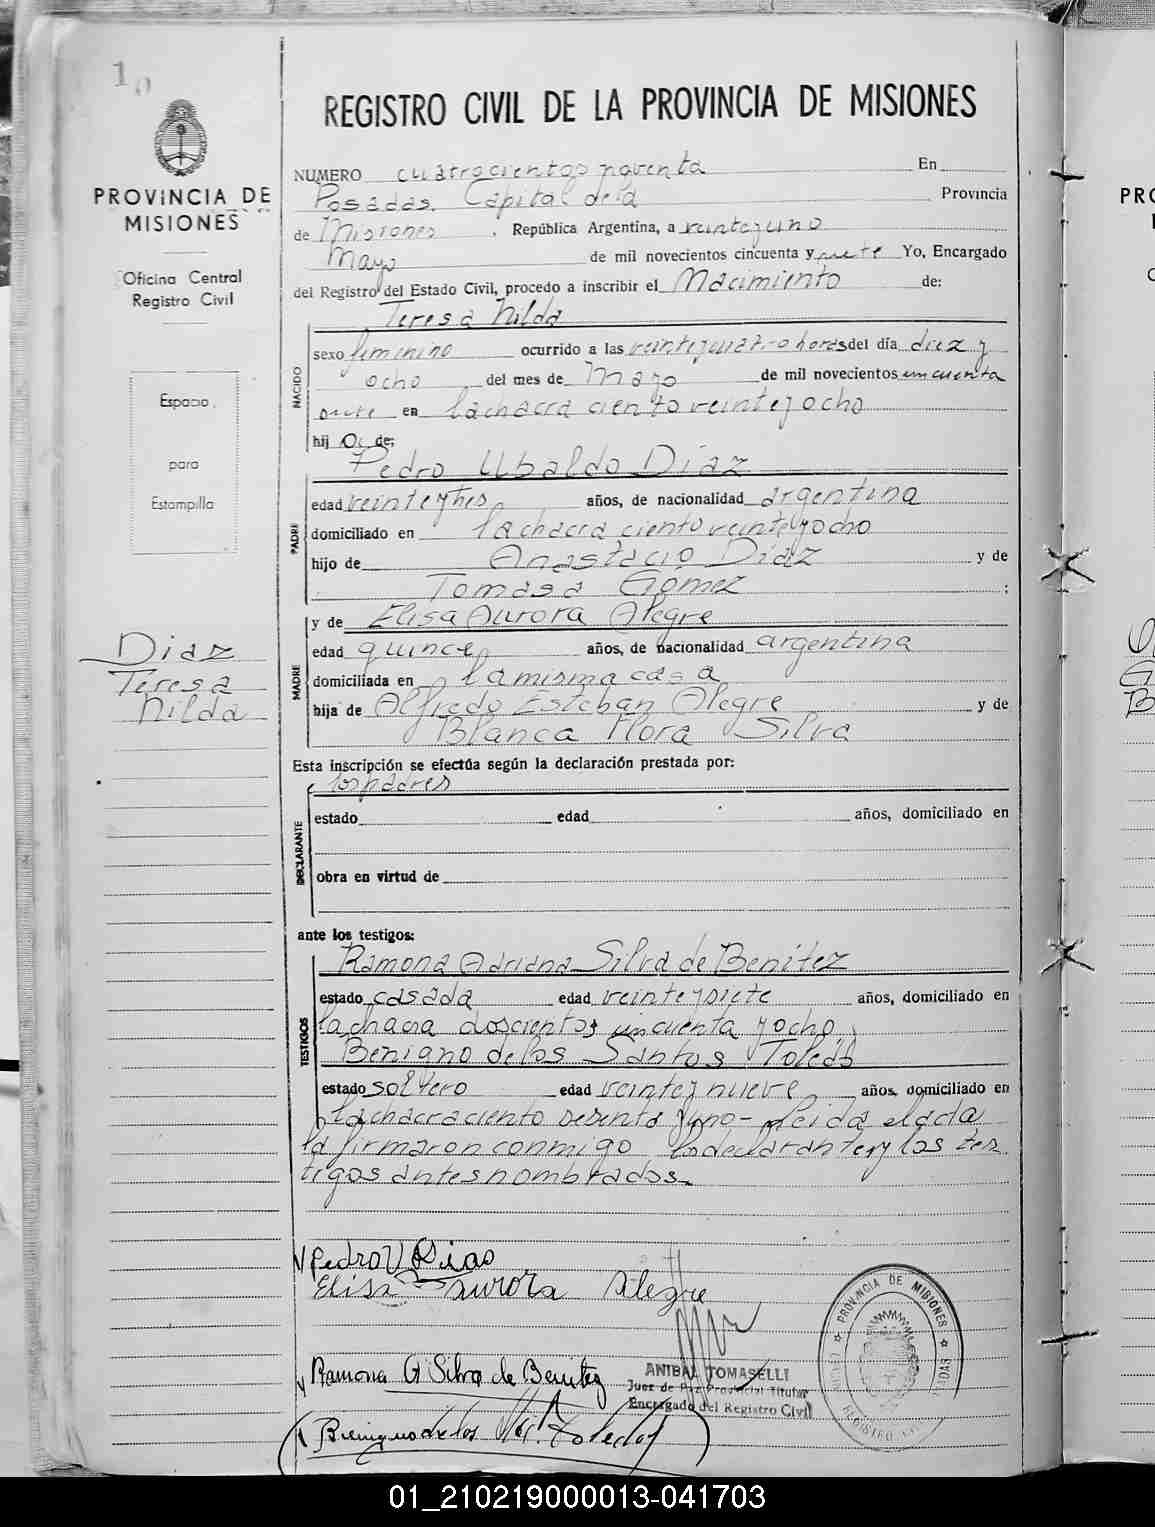 10
PROVINCIA DE
MISIONES
Oficina Central
Registro Civil
Espacio
para
Estampilla
Diaz
Teresa
Nilda
REGISTRO CIVIL DE LA PROVINCIA DE MISIONES
NUMERO cuatrocientos noventa En
Posadas. Capital de la Provincia
de Misiones, República Argentina, a veintejuno
Mayo de mil novecientos cincuenta y siete Yo, Encargado
del Registro del Estado Civil, procedo a inscribir el Nacimiento de:
Teresa Nilda
NACIDO
sexo femenino ocurrido a las veinteycuatro horas del día diez y
ocho del mes de Mayo de mil novecientos cincuenta
siete en la chacra ciento veinteyocho
hija de:
Pedro Ubaldo Diaz
PADRE
edad veinteytres años, de nacionalidad argentina
domiciliado en la chacra ciento veinteyocho
hijo de Anastacio Diaz y de
Tomasa Gómez ;
y de Elisa Aurora Alegre
MADRE
edad quince años, de nacionalidad argentina
domiciliada en la misma casa
hija de Alfredo Esteban Alegre y de
Blanca Flora Silva
Esta inscripción se efectúa según la declaración prestada por:
los padres
DECLARANTE
estado edad años, domiciliado en
obra en virtud de
ante los testigos:
Ramona Adriana Silva de Benítez
TESTIGOS
estado casada edad veinteysiete años, domiciliado en
la chacra doscientos cincuenta yocho,
Benigno de los Santos Toledo
estado soltero edad veinteynueve años, domiciliado en
la chacra ciento sesenta yuno- leida el acta
la firmaron conmigo los declarantes y los tes
tigos antes nombrados.
Pedro U Dias
Elisa Aurora Alegre
Ramona A Silva de Benitez
Benigno de los Stos. Toledo
ANIBAL TOMASELLI
Juez de Paz Provincial Titular
Encargado del Registro Civil
PROVINCIA DE MISIONES
REGISTRO
01_210219000013-041703